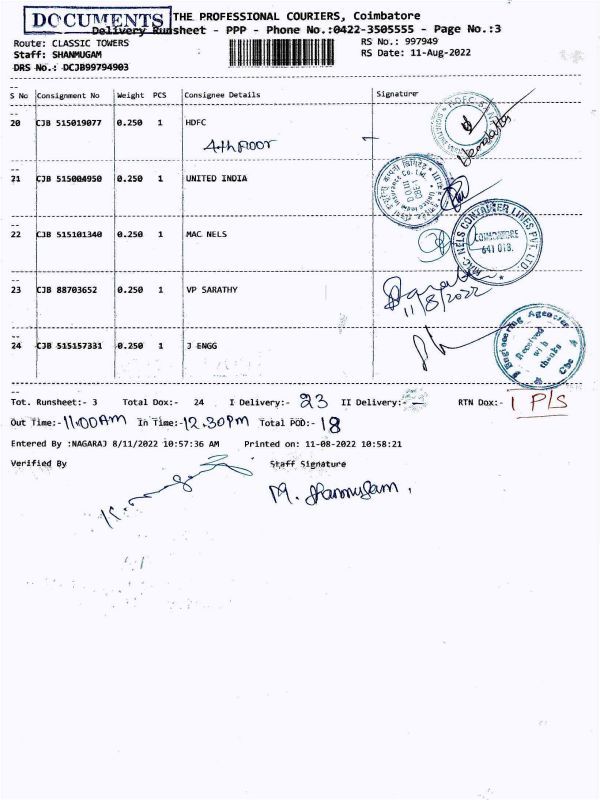 DOCUMENTS
THE PROFESSIONAL COURIERS, Coimbatore
Delivery Runsheet - PPP - Phone No.:0422-3505555 - Page No.:3
Route: CLASSIC TOWERS RS No.: 997949
Staff: SHANMUGAM RS Date: 11-Aug-2022
DRS No.: DCJB99794903
S No Consignment No Weight PCS Consignee Details Signature
20 CJB 515019077 0.250 1 HDFC
4th floor
21 CJB 515004950 0.250 1 UNITED INDIA
22 CJB 515101340 0.250 1 MAC NELS
MAC-NELS CONTAINER LINES PVT. LTD.
COIMBATORE
641 018.
23 CJB 88703652 0.250 1 VP SARATHY
11/8/2022
24 CJB 515157331 0.250 1 J ENGG
J Engineering Agencies
Received
with
thanks
Cbe
Tot. Runsheet:- 3 Total Dox:- 24 I Delivery:- 23 II Delivery:- RTN Dox:- 1 P/S
Out Time:- 11.00AM In Time:- 12.30PM Total POD:- 18
Entered By :NAGARAJ 8/11/2022 10:57:36 AM Printed on: 11-08-2022 10:58:21
Verified By Staff Signature
M. Shanmugam.